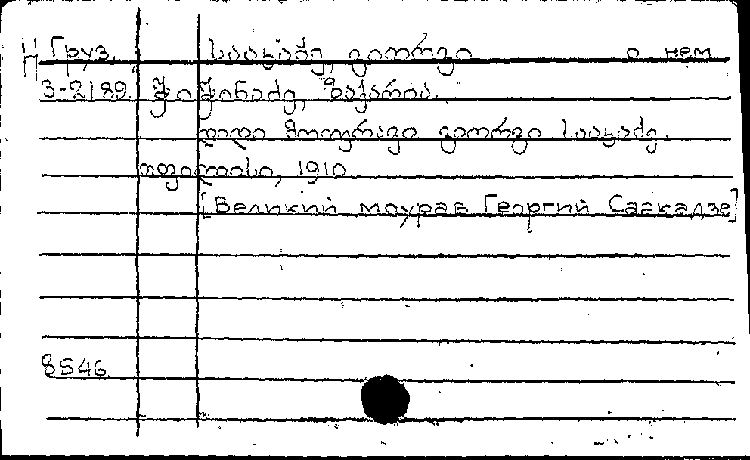 Н Груз. სააკაძე, გიორგი о нем
3-2189. ჭიჭინაძე, ზაქარია.
დიდი მოურავი გიორგი სააკაძე.
თფილისი, 1910
[Великий моурав Георгий Саакадзе]
8546